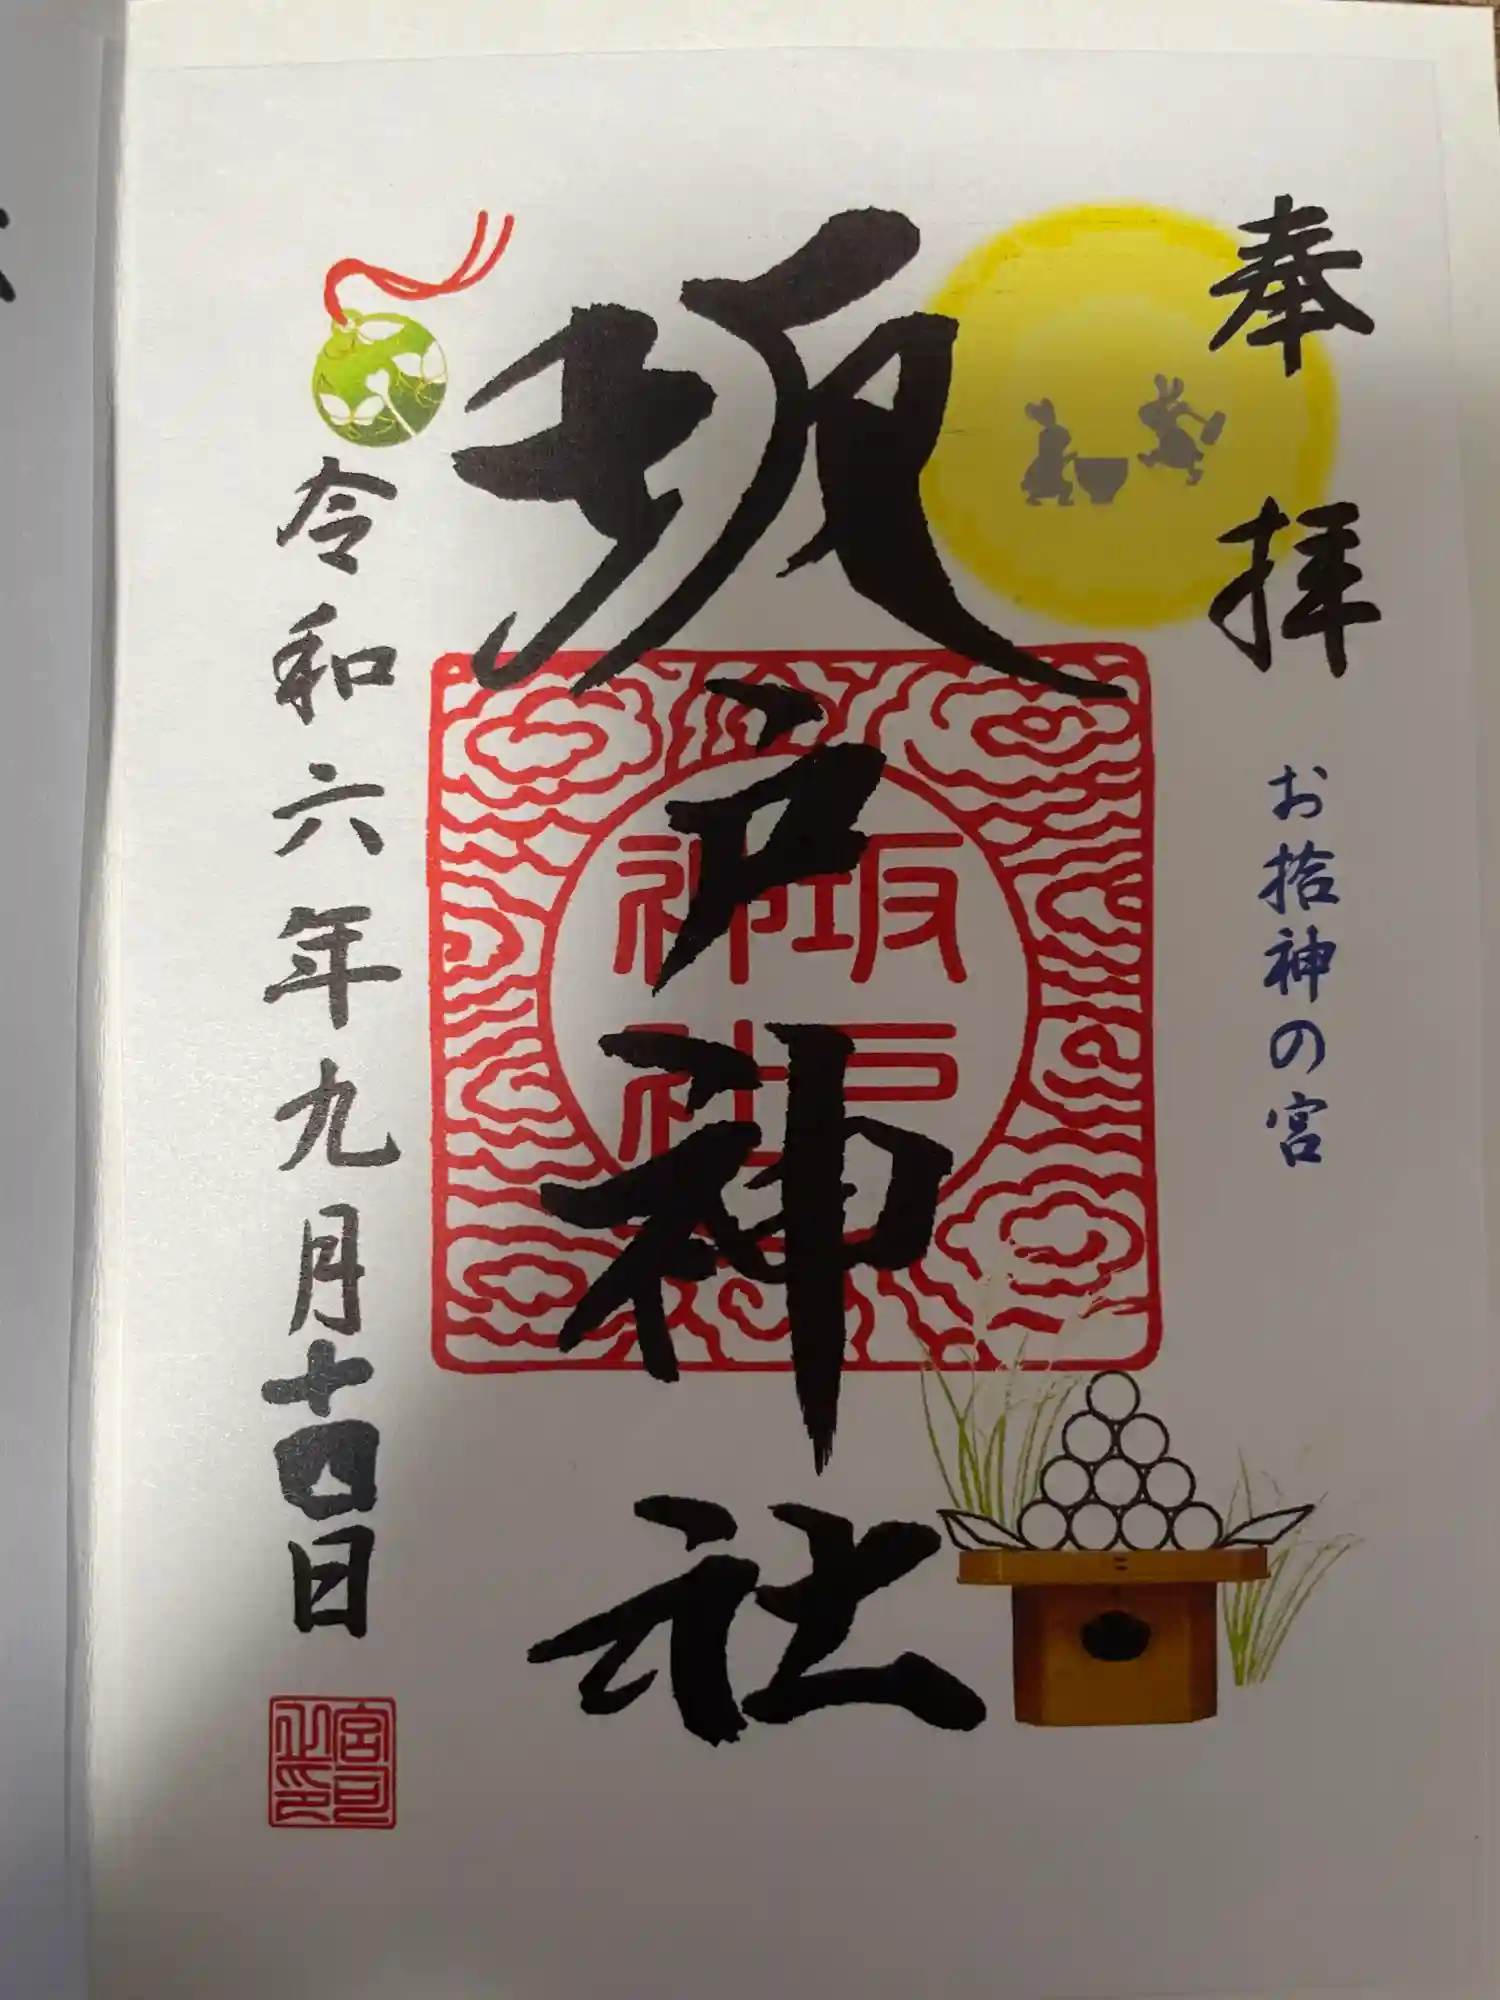 奉拝
お拾神の宮
坂戸神社
坂戸
神社
令和六年九月十四日
宮司
之印